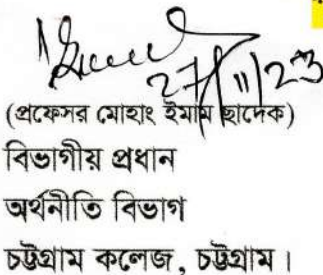 27/11/23
(প্রফেসর মোহাং ইমাম ছাদেক)
বিভাগীয় প্রধান
অর্থনীতি বিভাগ
চট্টগ্রাম কলেজ, চট্টগ্রাম।